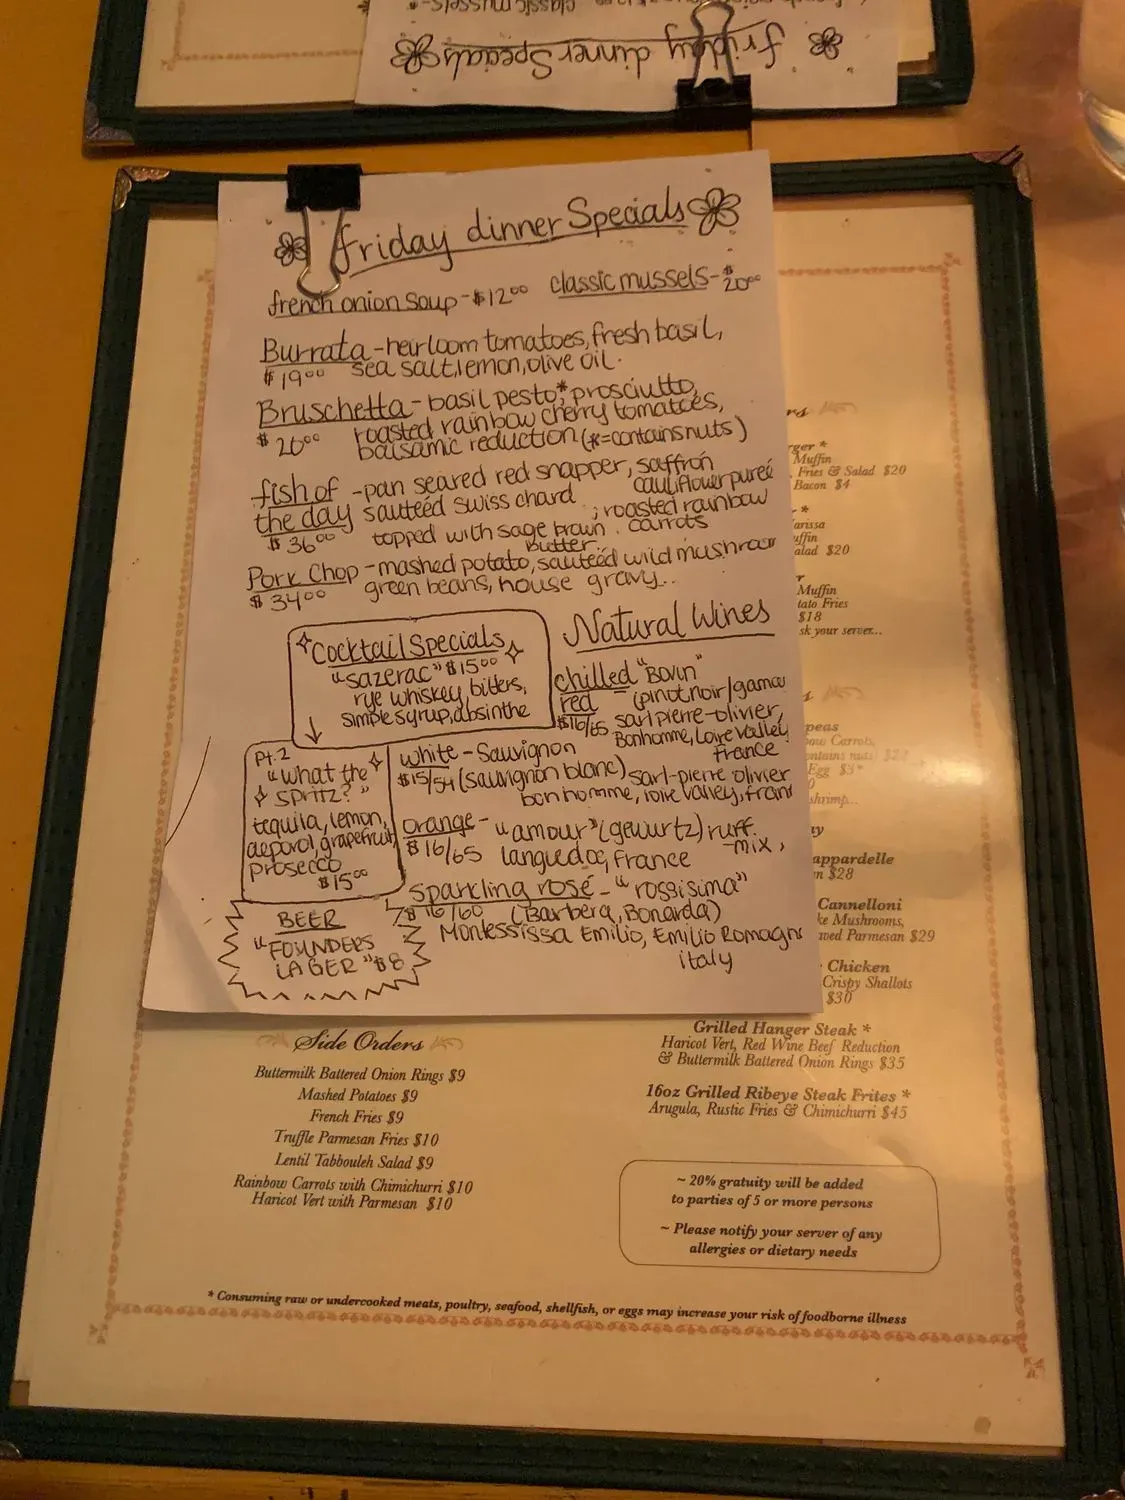 friday dinner Specials
friday dinner Specials
french onion soup - $12⁰⁰
classic mussels - $20⁰⁰
Burrata - heirloom tomatoes, fresh basil,
$19⁰⁰ sea salt, lemon, olive oil.
Bruschetta - basil pesto*, prosciutto,
roasted rainbow cherry tomatoes,
$20⁰⁰ balsamic reduction (*=contains nuts)
fish of - pan seared red snapper, saffron
cauliflower pureé
the day sauteéd swiss chard ; roasted rainbow
carrots
$36⁰⁰ topped with sage brown
butter
Pork Chop - mashed potato, sauteéd wild mushroo
$34⁰⁰ green beans, house gravy...
Cocktail Specials
"sazerac" $15⁰⁰
rye whiskey, bitters,
simple syrup, absinthe
Pt. 2
"what the
spritz?"
tequila, lemon,
aeparol, grapefruit,
prosecco
$15⁰⁰
BEER
"FOUNDERS
LAGER" $8
Natural Wines
chilled "Bovin"
red (pinot noir/gamay
$16/65 sarl pierre-olivier,
Bonhomme, Loire Valley,
France
white - Sauvignon
$15/54 (sauvignon blanc) sarl-pierre olivier
bonhomme, loire valley, fran
orange - "amour" (gewurtz) ruff.
mix,
$16/65 languedoc, France
sparkling rosé - "rossisima"
$16/60 (Barbera, Bonarda)
Montessissa Emilio, Emilio Romagn
italy
rger *
Muffin
Fries & Salad $20
Bacon $4
arissa
uffin
alad $20
Muffin
tato Fries
$18
sk your server...
peas
bow Carrots,
ntains nuts
Egg $3*
shrimp...
appardelle
$28
Cannelloni
ke Mushrooms,
aved Parmesan $29
Chicken
Crispy Shallots
$30
Grilled Hanger Steak *
Haricot Vert, Red Wine Beef Reduction
& Buttermilk Battered Onion Rings $35
16oz Grilled Ribeye Steak Frites *
Arugula, Rustic Fries & Chimichurri $45
Side Orders
Buttermilk Battered Onion Rings $9
Mashed Potatoes $9
French Fries $9
Truffle Parmesan Fries $10
Lentil Tabbouleh Salad $9
Rainbow Carrots with Chimichurri $10
Haricot Vert with Parmesan $10
~ 20% gratuity will be added
to parties of 5 or more persons
~ Please notify your server of any
allergies or dietary needs
* Consuming raw or undercooked meats, poultry, seafood, shellfish, or eggs may increase your risk of foodborne illness